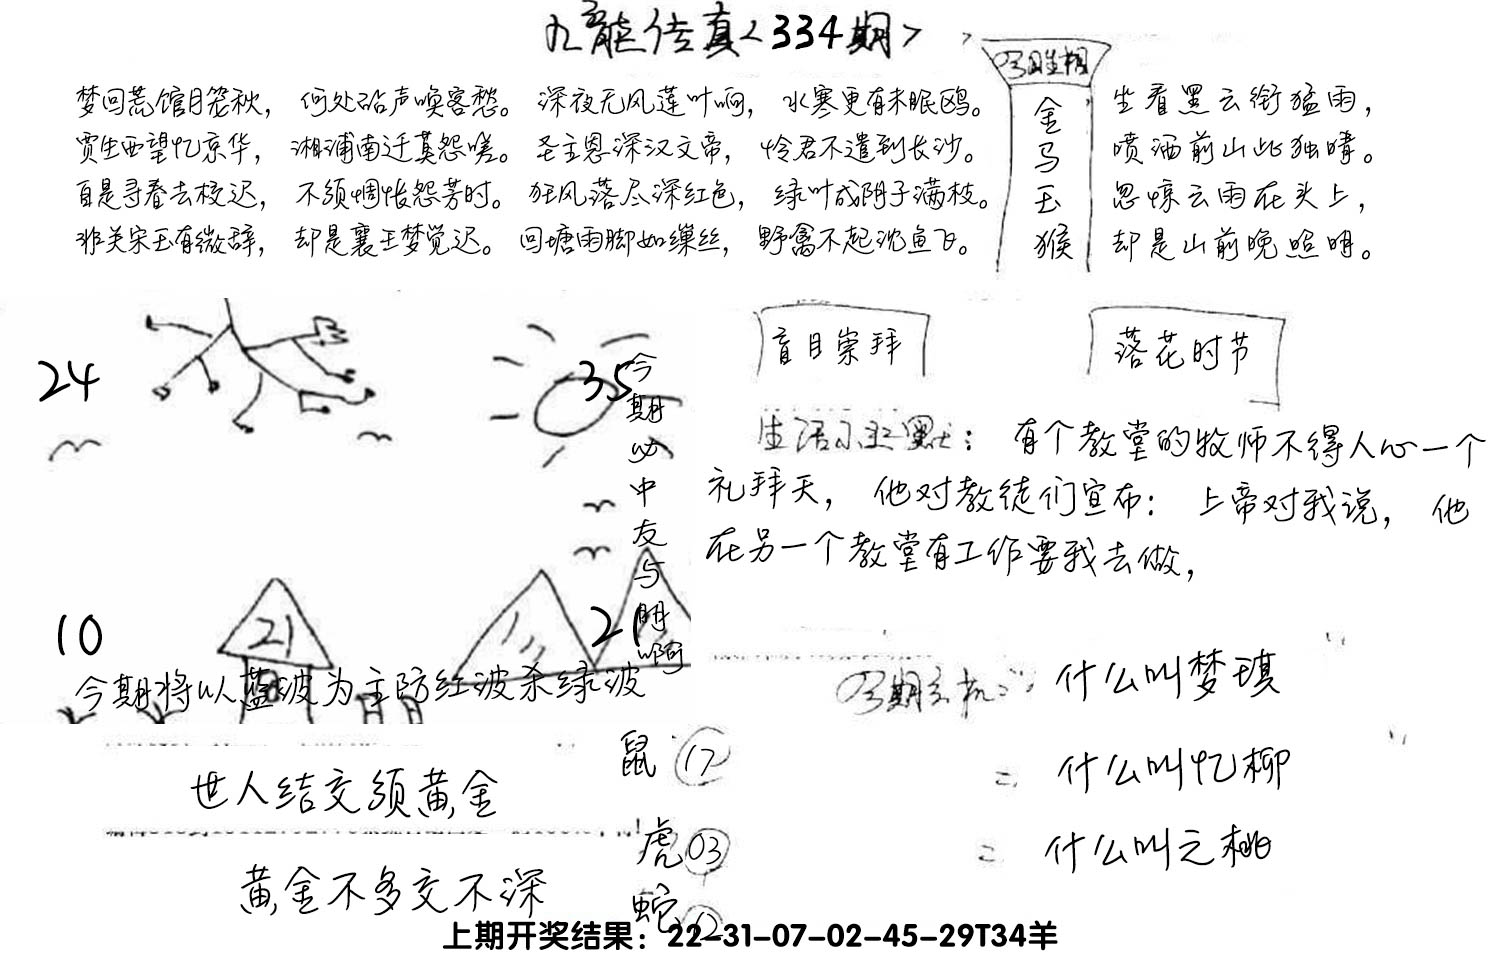 九龍传真<334期>
梦回荒馆月笼秋，何处砧声唤客愁。深夜无风莲叶响，水寒更有未眠鸥。
贾生西望忆京华，湘浦南迁莫怨嗟。圣主恩深汉文帝，怜君不遣到长沙。
自是寻春去校迟，不须惆怅怨芳时。狂风落尽深红色，绿叶成阴子满枝。
非关宋玉有微辞，却是襄王梦觉迟。回塘雨脚如缫丝，野禽不起沈鱼飞。
金
马
玉
猴
坐看黑云衔猛雨，
喷洒前山此独晴。
忽惊云雨在头上，
却是山前晚照明。
24
35
10
21
21
今期必中友与朋啊
今期将以蓝波为主防红波杀绿波
盲目崇拜
落花时节
有个教堂的牧师不得人心一个
礼拜天，他对教徒们宣布：上帝对我说，他
在另一个教堂有工作要我去做，
什么叫梦琪
什么叫忆柳
什么叫之桃
世人结交须黄金
黄金不多交不深
鼠 17
虎 03
蛇
上期开奖结果：22-31-07-02-45-29T34羊